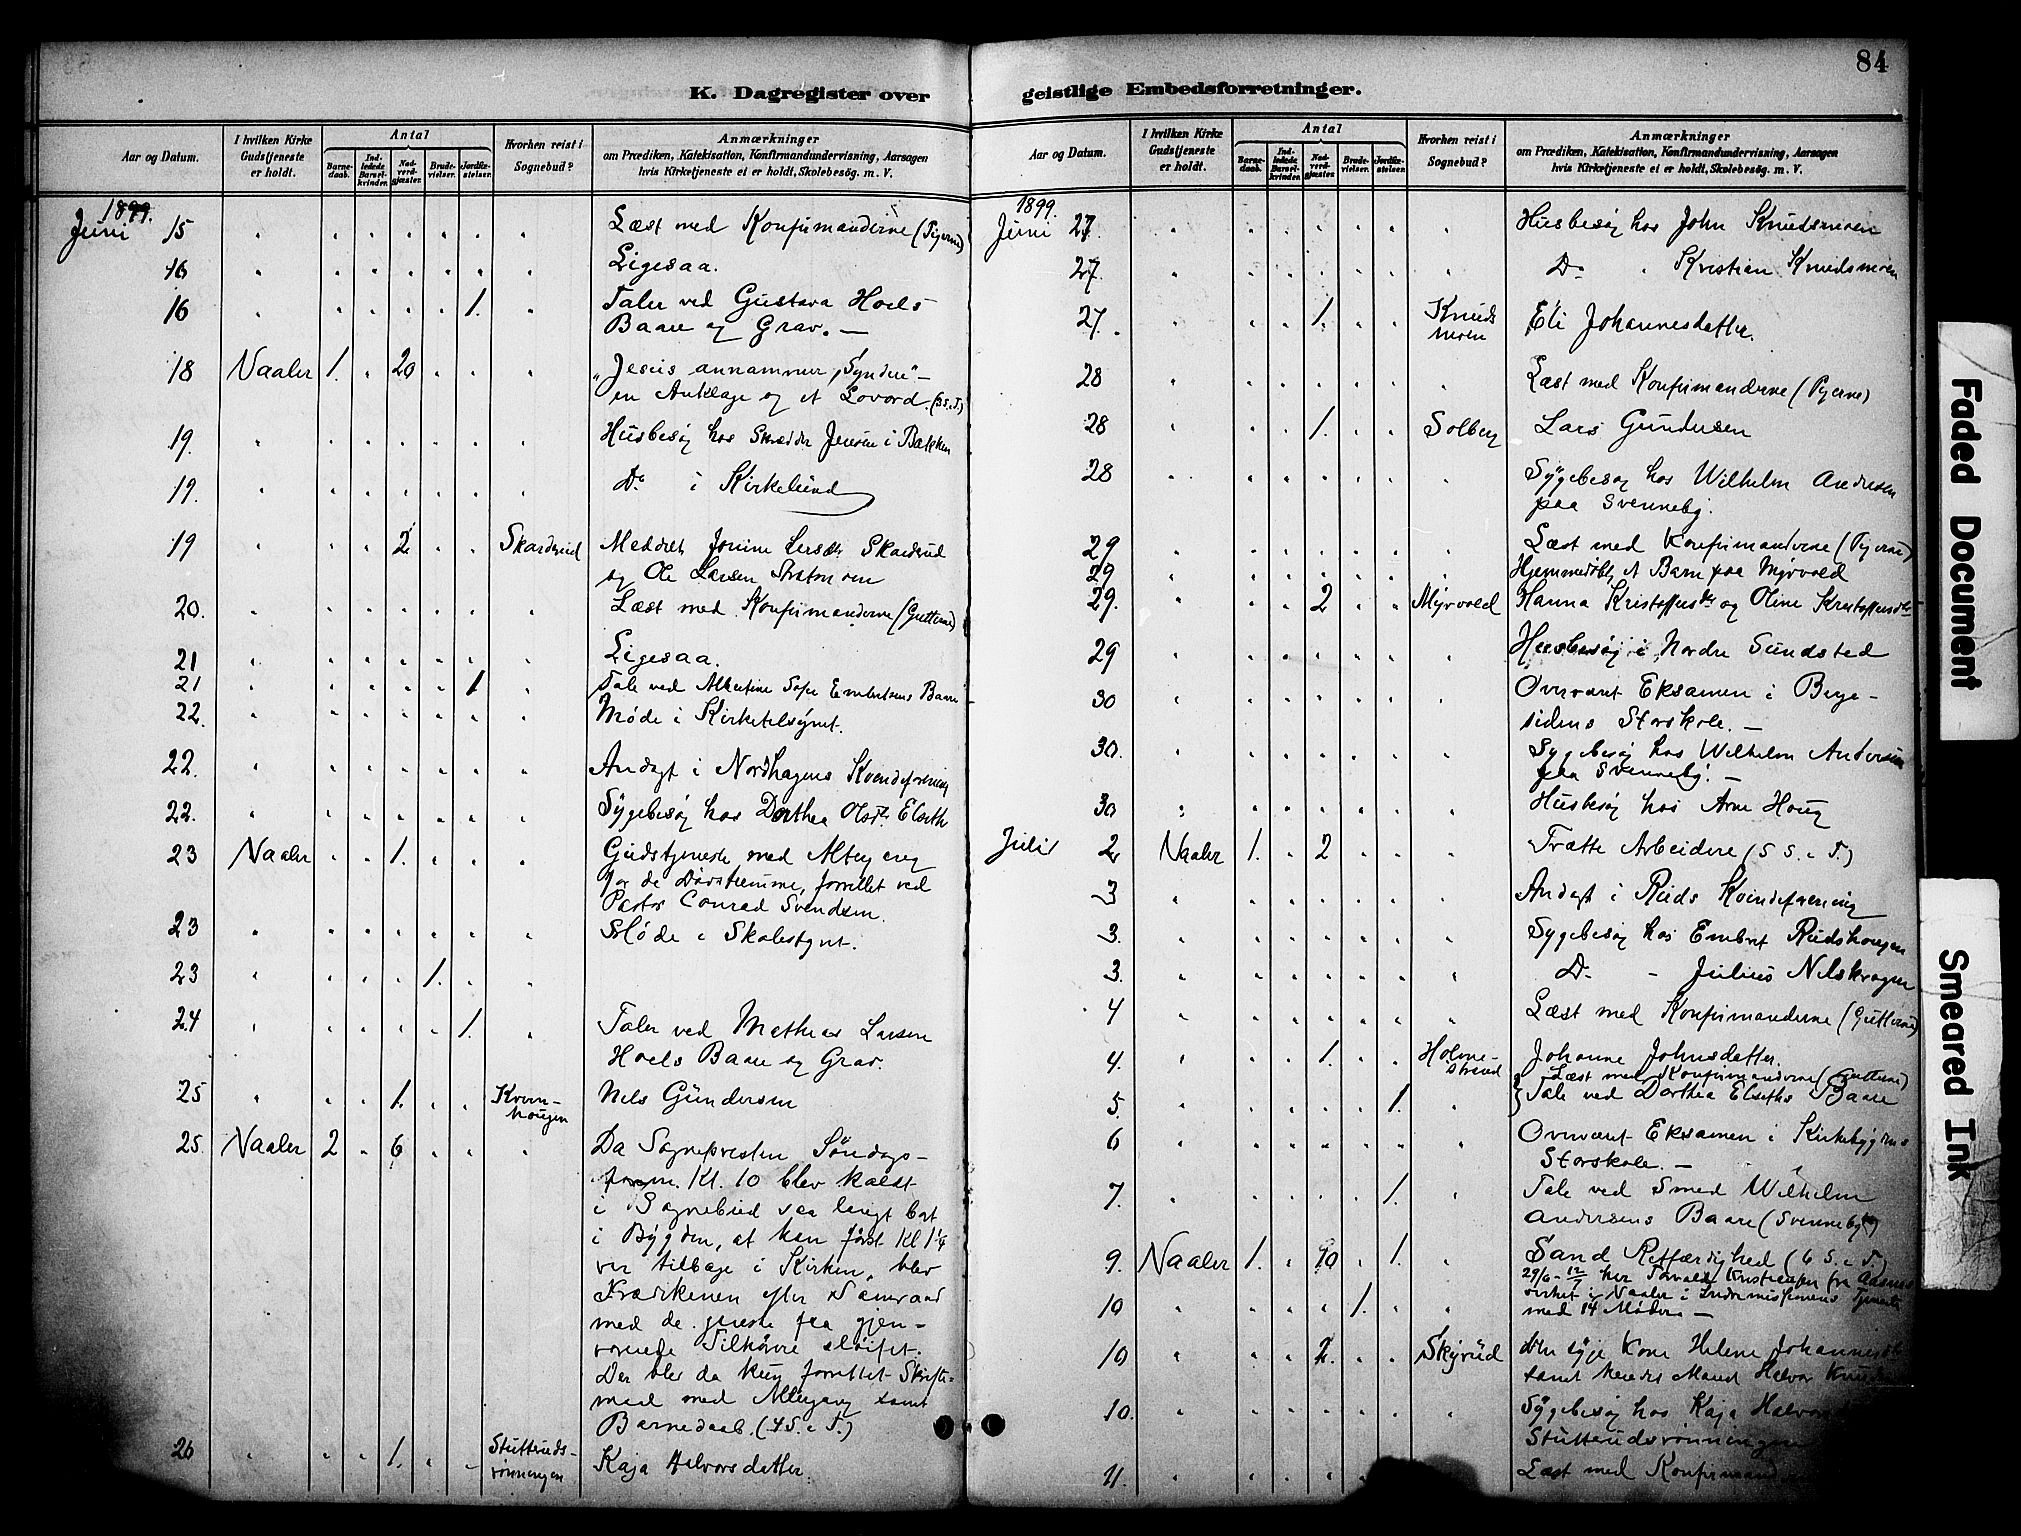 84
K. Dagregister over geistlige Embedsforretninger.
Aar og Datum. I hvilken Kirke Gudstjeneste er holdt. Antal Barnedaab. Indledede Barselkvinder. Nadverdgjæster. Brudevielser. Jordfæstelser. Hvorhen reist i Sognebud? Anmærkninger om Prædiken, Katekisation, Konfirmandundervisning, Aarsagen hvis Kirketjeneste ei er holdt, Skolebesøg. m. V.
1899.
Juni 15 Læst med Konfirmanderne (Pigerne)
16 Ligesaa.
16 1. Taler ved Gustava Hoels
Baare og Grav. —
18 Naaler 1. 20 "Jesus annammer Syndere" —
en Anklage og et Lovord. (3 S. e. T.)
19. Husbesøg hos Skrædder Jensen i Bakken
19. Do i Kirkelund
19 2 Skarderud Meddelt Jonine Larsdtr Skarderud
og Ole Larsen
20. Læst med Konfirmanderne (Gutterne)
21 Ligesaa.
21 1 Tale ved Albertine Sofie Embretsens Baare
22. Møde i Kirketilsynet.
22. Andagt i Nordhagens Kvindeforening
22. Sygebesøg hos Dorthea Olsdtr. Elseth
23 Naaler 1. Gudstjeneste med Altergang
for de Døvstumme, forrettet ved
Pastor Conrad Svendsen.
23 Møde i Skolestyret.
23 1.
24 1. Taler ved Mathias Larsen
Hoels Baare og Grav.
25 1. Kvernhougen Nils Gundersen
25. Naaler 2 6 Da Sognepresten Søndags-
form. Kl. 10 blev kaldt
i Sognebud saa langt bort
i Bygden, at han først Kl 1¼
var tilbage i Kirken, blev
Prædikenen efter Samraad
med de fleste paa gjen-
værende Tilhørre sløifet.
Der blev da kun forrettet Skrifte-
maal med Altergang samt
Barnedaab. (4 S. e T.)
26 1. Stutterudsrønningen Kaja Halvorsdatter.
Aar og Datum. I hvilken Kirke Gudstjeneste er holdt. Antal Barnedaab. Indledede Barselkvinder. Nadverdgjæster. Brudevielser. Jordfæstelser. Hvorhen reist i Sognebud? Anmærkninger om Prædiken, Katekisation, Konfirmandundervisning, Aarsagen hvis Kirketjeneste ei er holdt, Skolebesøg. m. V.
1899.
Juni 27. Husbesøg hos John Knudsmoen
27. Do " Kristian Knudsmoen
27. 1. Knudsmoen Eli Johannesdatter.
28 Læst med Konfirmanderne (Pigerne)
28 1. Solberg Lars Gundersen
28 Sygebesøg hos Wilhelm Andersen
paa Svenneby.
29 Læst med Konfirmanderne (Pigerne)
29 Hjemmedøbt et Barn paa Myrvold
29. 2 Myrvold Hanna Kristoffersdtr og Oline Kristoffersdtr
29 Husbesøg i Nordre Sundsted
30 Overværet Eksamen i Berge-
sidens Storskole. —
30. Sygebesøg hos Wilhelm Andersen
paa Svenneby. —
30 Husbesøg hos Arne Houg
Juli 2 Naaler 1. 2 Trætte Arbeidere (5 S. e T.)
3 Andagt i Ruds Kvindeforening
3. Sygebesøg hos Embret Rudshougen
3. Do - Julius Nilskrogen
4 Læst med Konfirmanderne (Gutterne)
4. 1. Holmestrand Johanne Johnsdatter.
Læst med Konfirmanderne (Gutterne)
5. 1. Tale ved Dorthea Elseths Baare
6 Overværet Eksamen i Kirkebygdens
Storskole. —
7. 1. Tale ved Smed Wilhelm
Andersens Baare (Svenneby)
9. Naaler 1. 10 1. Sand Retfærdighed (6 S. e T.)
29/6 - 12/7 har
virket i Naaler i Indremissionens Tjeneste
10 1. med 14 Møder. —
10 2. Skyrud den syge Kone Helene Johannesdtr
samt hendes Mand Halvor
10. Sygebesøg hos Kaja
Stutterudsrønningen
11. Læst med
Faded Document
Smeared Ink